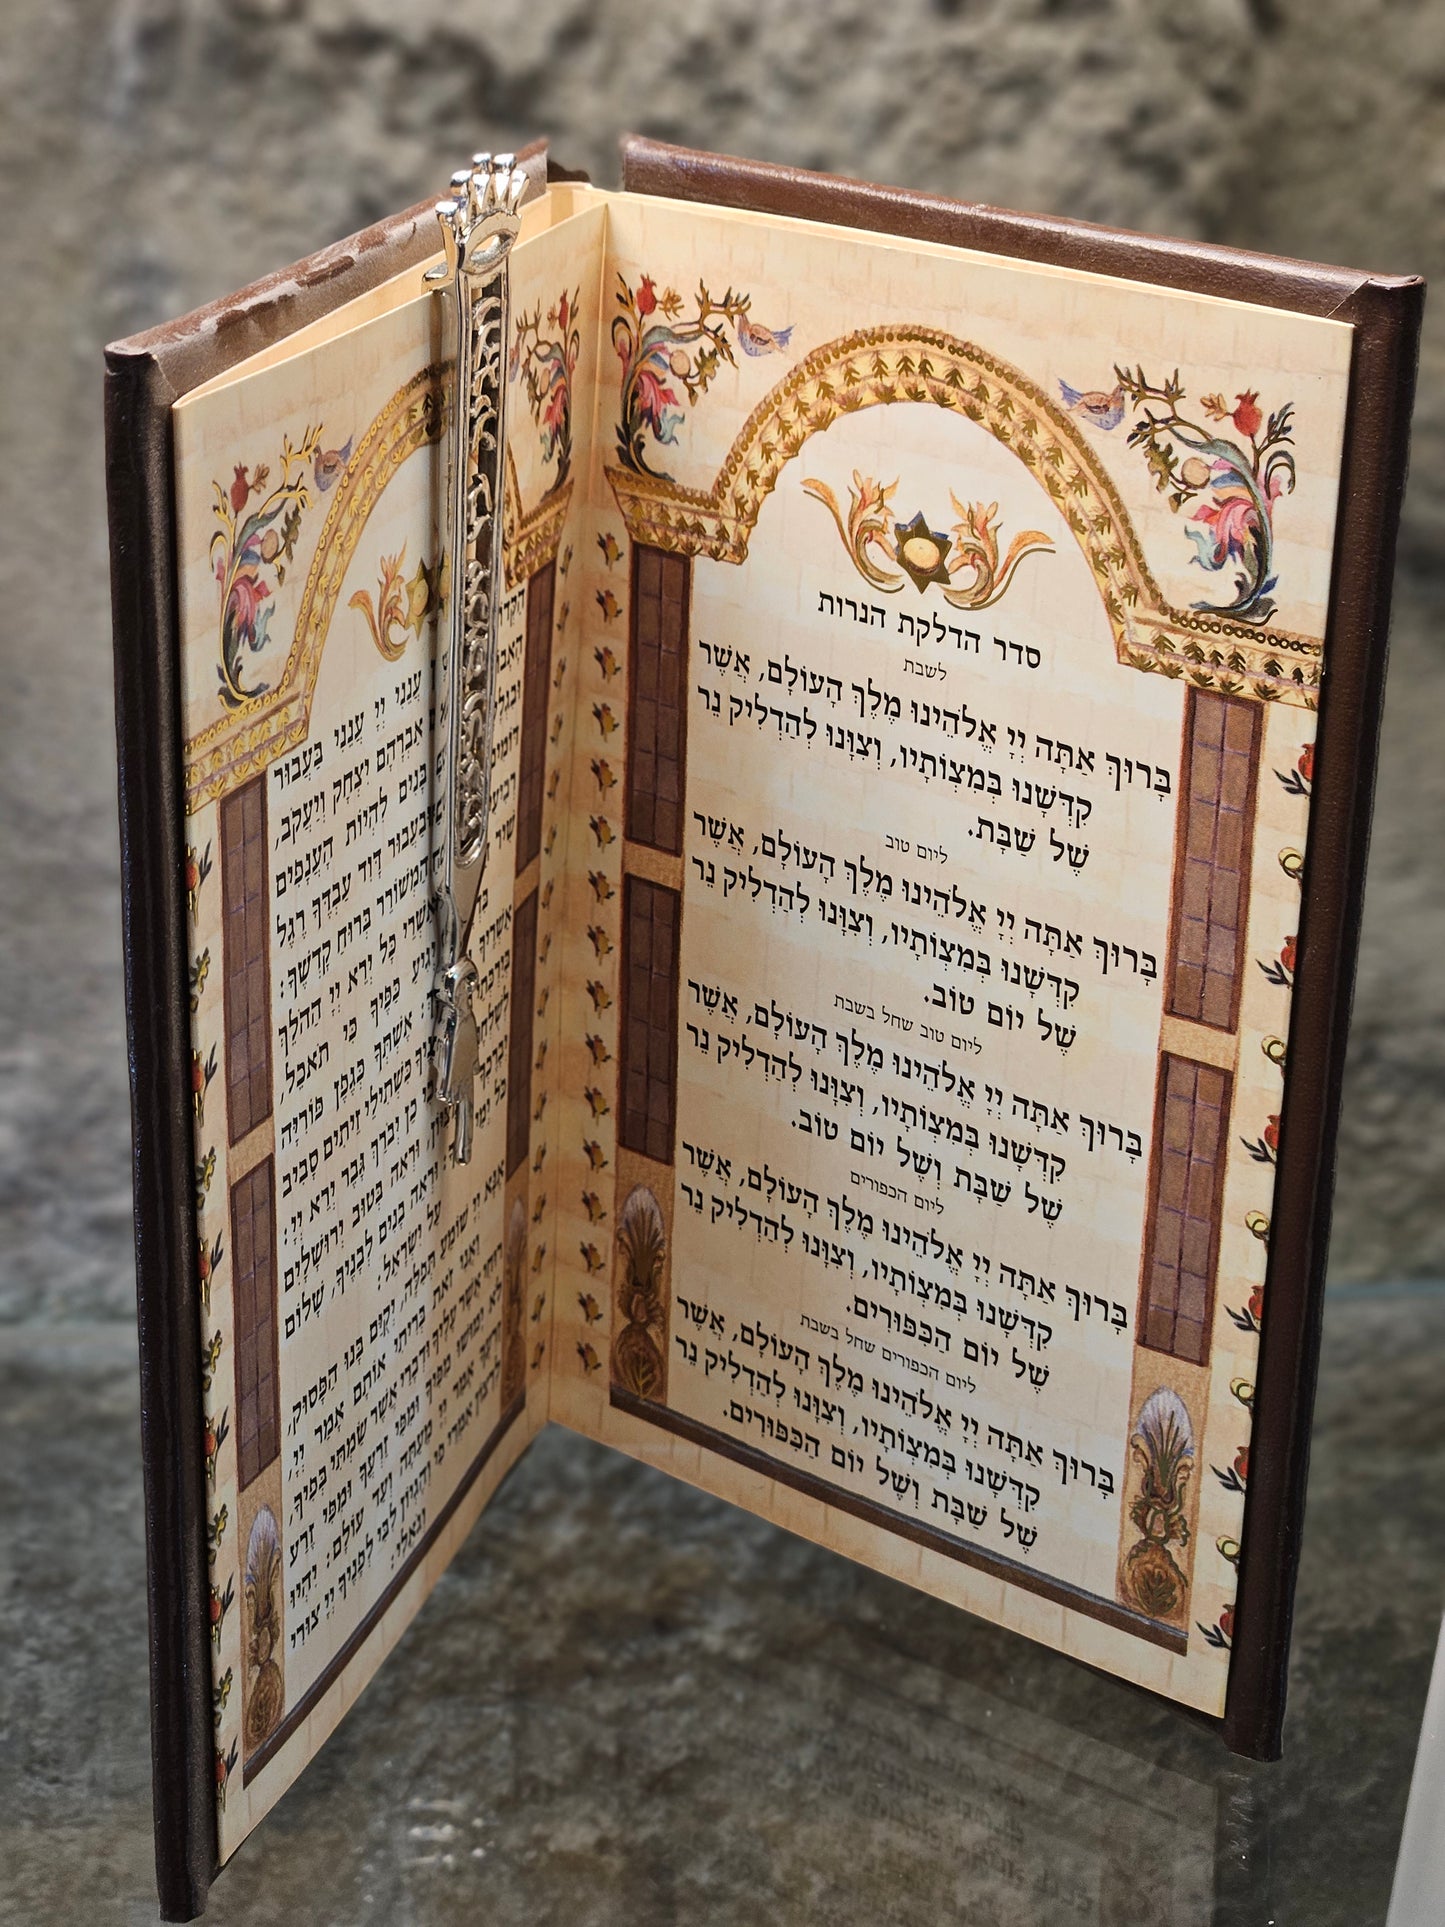 סדר הדלקת הנרות
לשבת
בָּרוּךְ אַתָּה יְיָ אֱלֹהֵינוּ מֶלֶךְ הָעוֹלָם, אֲשֶׁר
קִדְּשָׁנוּ בְּמִצְוֹתָיו, וְצִוָּנוּ לְהַדְלִיק נֵר
שֶׁל שַׁבָּת.
ליום טוב
בָּרוּךְ אַתָּה יְיָ אֱלֹהֵינוּ מֶלֶךְ הָעוֹלָם, אֲשֶׁר
קִדְּשָׁנוּ בְּמִצְוֹתָיו, וְצִוָּנוּ לְהַדְלִיק נֵר
שֶׁל יוֹם טוֹב.
ליום טוב שחל בשבת
בָּרוּךְ אַתָּה יְיָ אֱלֹהֵינוּ מֶלֶךְ הָעוֹלָם, אֲשֶׁר
קִדְּשָׁנוּ בְּמִצְוֹתָיו, וְצִוָּנוּ לְהַדְלִיק נֵר
שֶׁל שַׁבָּת וְשֶׁל יוֹם טוֹב.
ליום הכפורים
בָּרוּךְ אַתָּה יְיָ אֱלֹהֵינוּ מֶלֶךְ הָעוֹלָם, אֲשֶׁר
קִדְּשָׁנוּ בְּמִצְוֹתָיו, וְצִוָּנוּ לְהַדְלִיק נֵר
שֶׁל יוֹם הַכִּפּוּרִים.
ליום הכפורים שחל בשבת
בָּרוּךְ אַתָּה יְיָ אֱלֹהֵינוּ מֶלֶךְ הָעוֹלָם, אֲשֶׁר
קִדְּשָׁנוּ בְּמִצְוֹתָיו, וְצִוָּנוּ לְהַדְלִיק נֵר
שֶׁל שַׁבָּת וְשֶׁל יוֹם הַכִּפּוּרִים.
עֲנֵנִי יְיָ עֲנֵנִי בַּעֲבוּר
אַבְרָהָם יִצְחָק וְיַעֲקֹב,
בָּנִים לִהְיוֹת הָעֲנָפִים
וּבַעֲבוּר דָּוִד עַבְדֶּךָ רֶגֶל
שִׁיר הַמְשׁוֹרֵר בְּרוּחַ קָדְשֶׁךָ:
אַשְׁרֵי כָּל יְרֵא יְיָ הַהֹלֵךְ
יְגִיעַ כַּפֶּיךָ כִּי תֹאכֵל,
אֶשְׁתְּךָ כְּגֶפֶן פּוֹרִיָּה
כִּשְׁתִילֵי זֵיתִים סָבִיב
כֵן יְבֹרַךְ גָּבֶר יְרֵא יְיָ:
וּרְאֵה בְּטוּב יְרוּשָׁלָיִם
כֹּל וּרְאֵה בָנִים לְבָנֶיךָ, שָׁלוֹם
עַל יִשְׂרָאֵל:
אָנָּא יְיָ שׁוֹמֵעַ תְּפִלָּה, יְקַיֵּם בָּנוּ הַפָּסוּק,
וַאֲנִי זֹאת בְּרִיתִי אוֹתָם אָמַר יְיָ,
רוּחִי אֲשֶׁר עָלֶיךָ וּדְבָרַי אֲשֶׁר שַׂמְתִּי בְּפִיךָ,
לֹא יָמוּשׁוּ מִפִּיךָ וּמִפִּי זַרְעֲךָ וּמִפִּי זֶרַע
זַרְעֲךָ אָמַר יְיָ מֵעַתָּה וְעַד עוֹלָם: יִהְיוּ
לְרָצוֹן אִמְרֵי פִי וְהֶגְיוֹן לִבִּי לְפָנֶיךָ יְיָ צוּרִי
וְגֹאֲלִי: